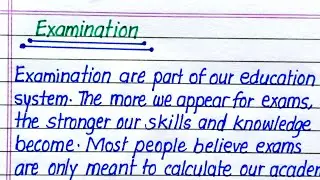 Examination
Examination are part of our education
system. The more we appear for exams,
the stronger our skills and knowledge
become. Most people believe exams
are only meant to calculate our academ